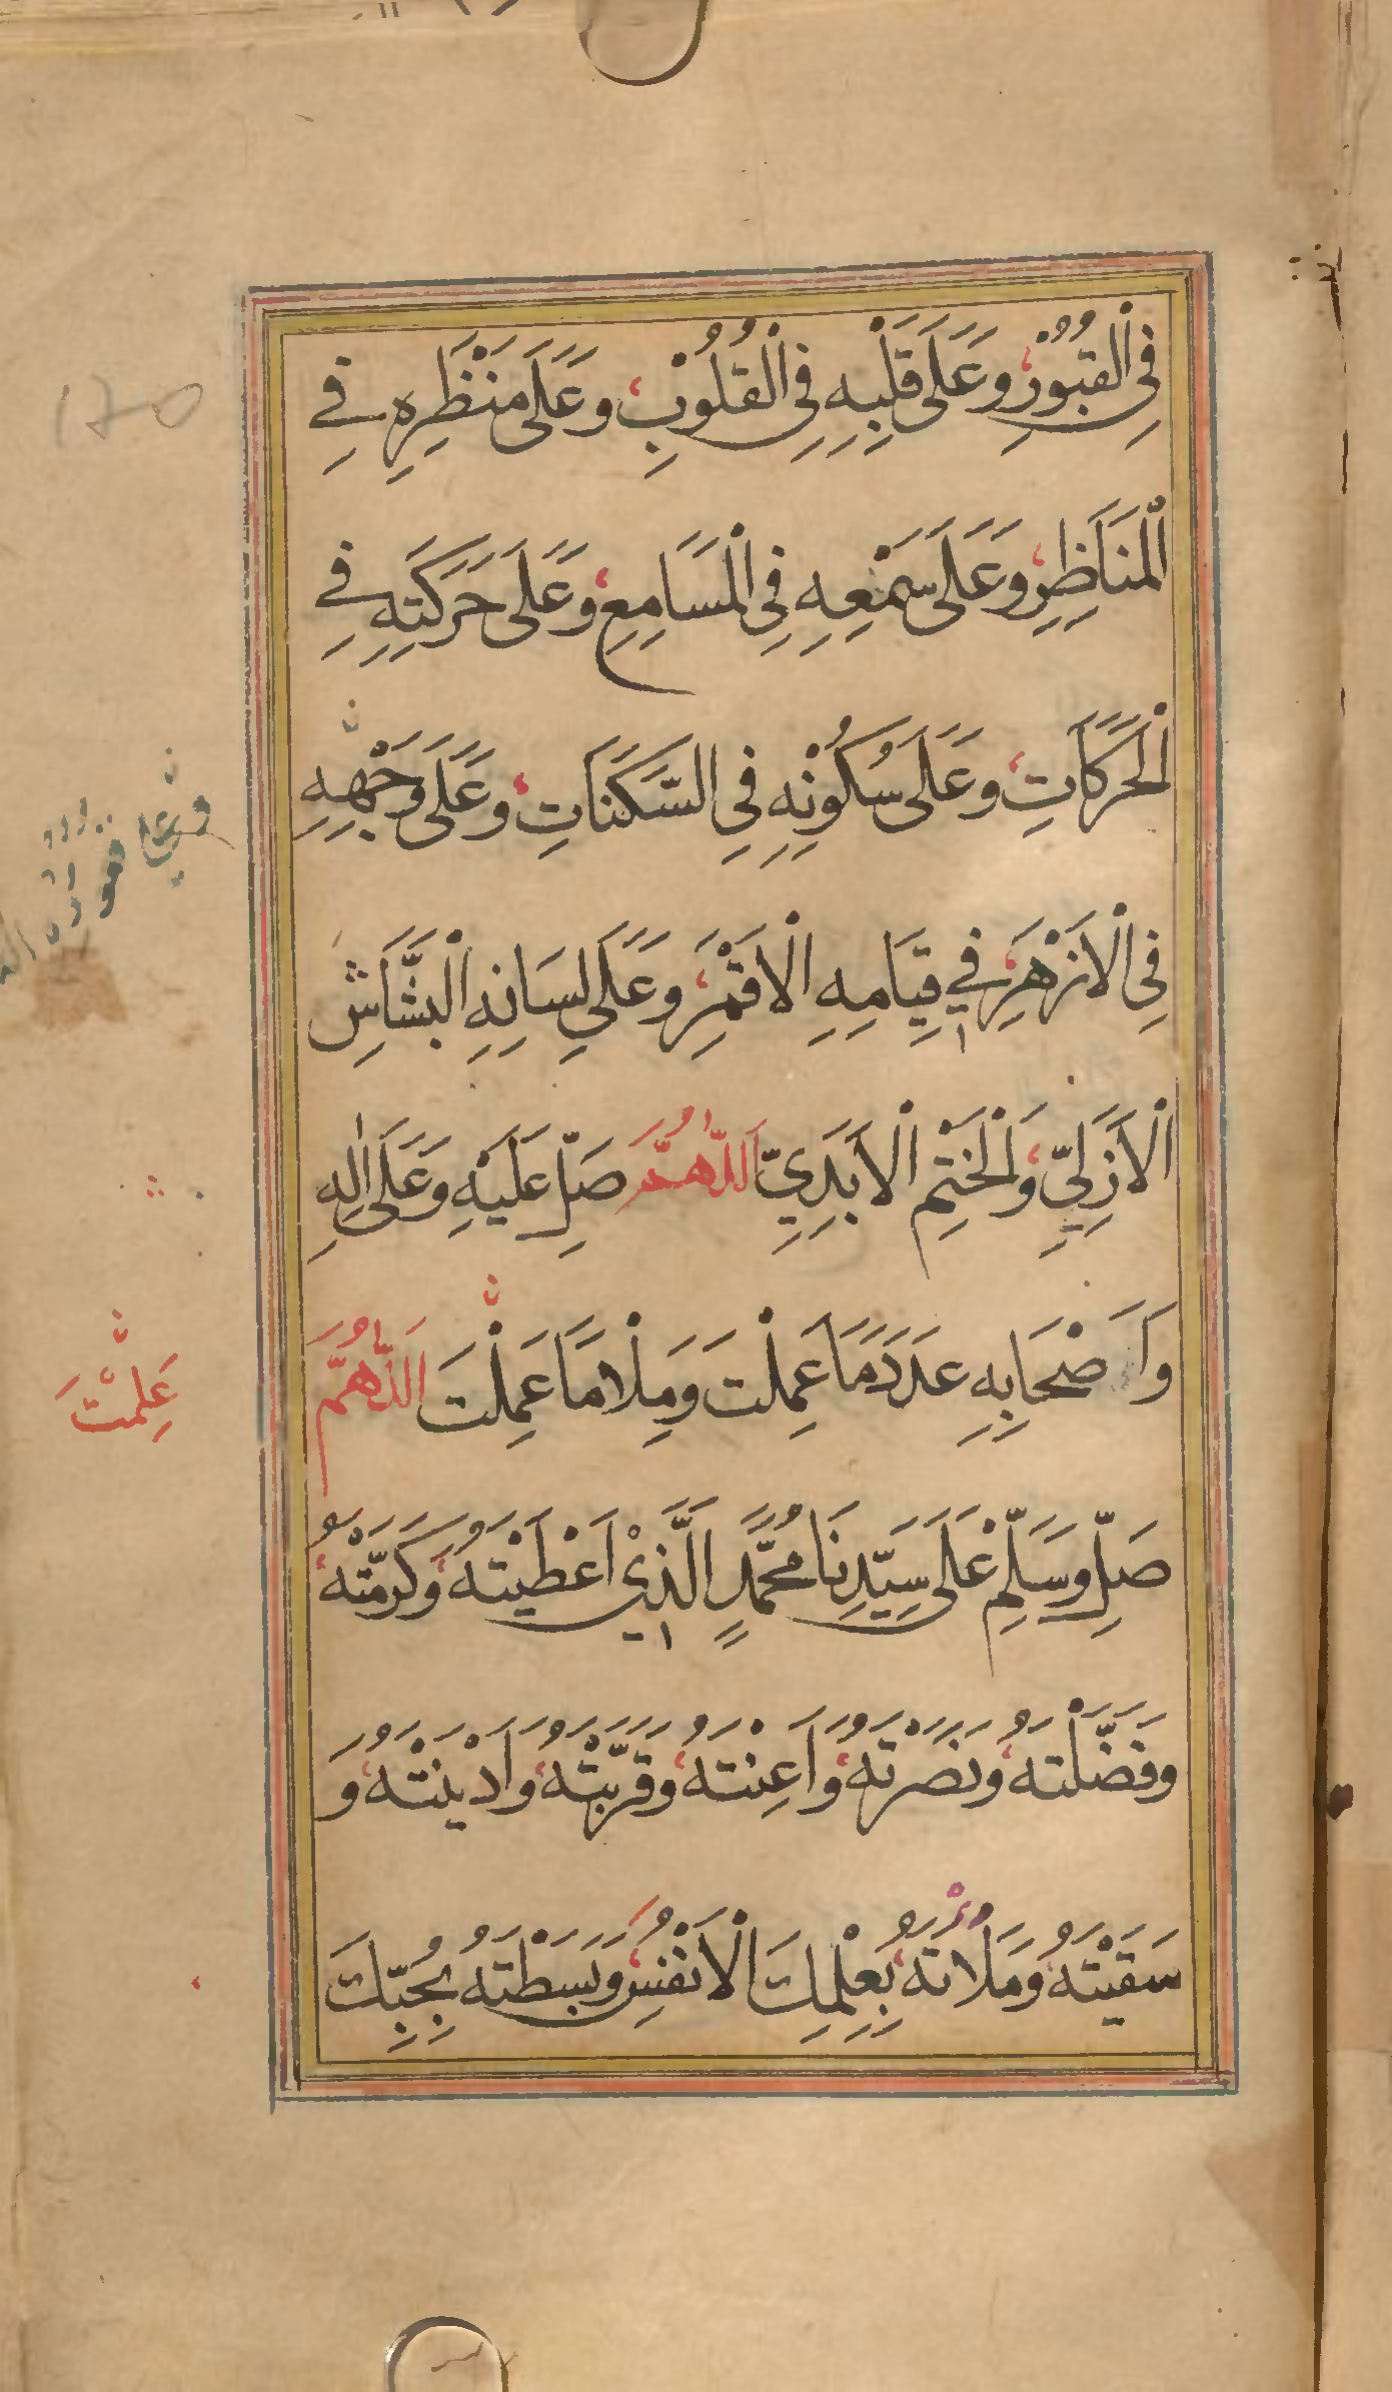 فِي الْقُبُوْرِ وَعَلَى قَلْبِهِ فِي الْقُلُوْبِ وَعَلَى مَنْظَرِهِ فِي
الْمَنَاظِرِ وَعَلَى سَمْعِهِ فِي الْمَسَامِعِ وَعَلَى حَرَكَتِهِ فِي
الْحَرَكَاتِ وَعَلَى سُكُوْنِهِ فِي السَّكَنَاتِ وَعَلَى وَجْهِهِ
فِي الْاَزْهَرِ فِي قِيَامِهِ الْاَقْمَرِ وَعَلَى لِسَانِهِ الْبَشَّاشِ
الْاَزَلِيِّ وَالْخَتْمِ الْاَبَدِيِّ اَللّٰهُمَّ صَلِّ عَلَيْهِ وَعَلَى اٰلِهِ
وَاَصْحَابِهِ عَدَدَ مَا عَمِلْتَ وَمِلْاَ مَا عَمِلْتَ اَللّٰهُمَّ
صَلِّ وَسَلِّمْ عَلَى سَيِّدِنَا مُحَمَّدٍ الَّذِيْ اَعْطَيْتَهُ وَكَرَّمْتَهُ
وَفَضَّلْتَهُ وَنَصَرْتَهُ وَاَعِنْتَهُ وَقَرَّبْتَهُ وَاَدْنَيْتَهُ وَ
سَقَيْتَهُ وَمَلَاْتَهُ بِعِلْمِكَ الْاَنْفَسِ وَبَسَطْتَهُ بِحُبِّكَ
عَلِمْتَ
١٧٥